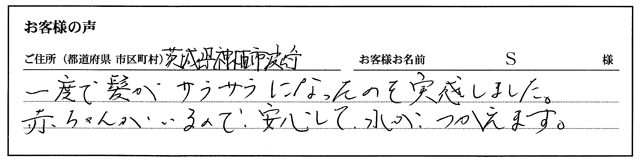 お客様の声
ご住所（都道府県 市区町村）茨城県神栖市波崎 お客様お名前 S 様
一度で髪がサラサラになったのを実感しました。
赤ちゃんがいるので、安心して、水が、つかえます。